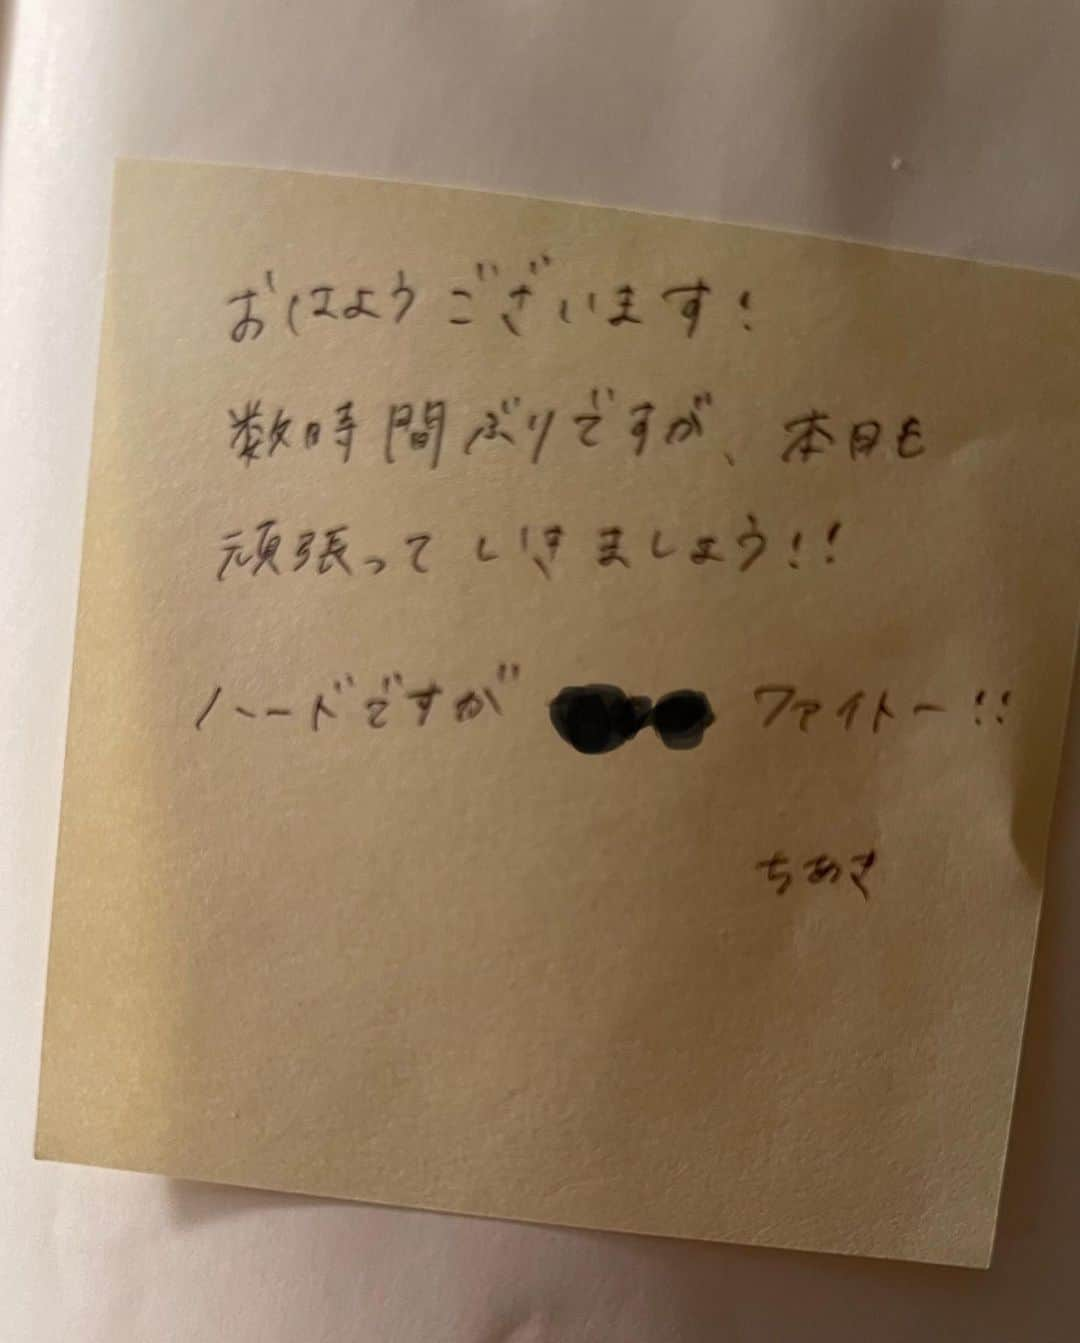 おはようございます!
数時間ぶりですが、本日も
頑張っていきましょう!!
ハードですが ファイトー!!
ちあさ